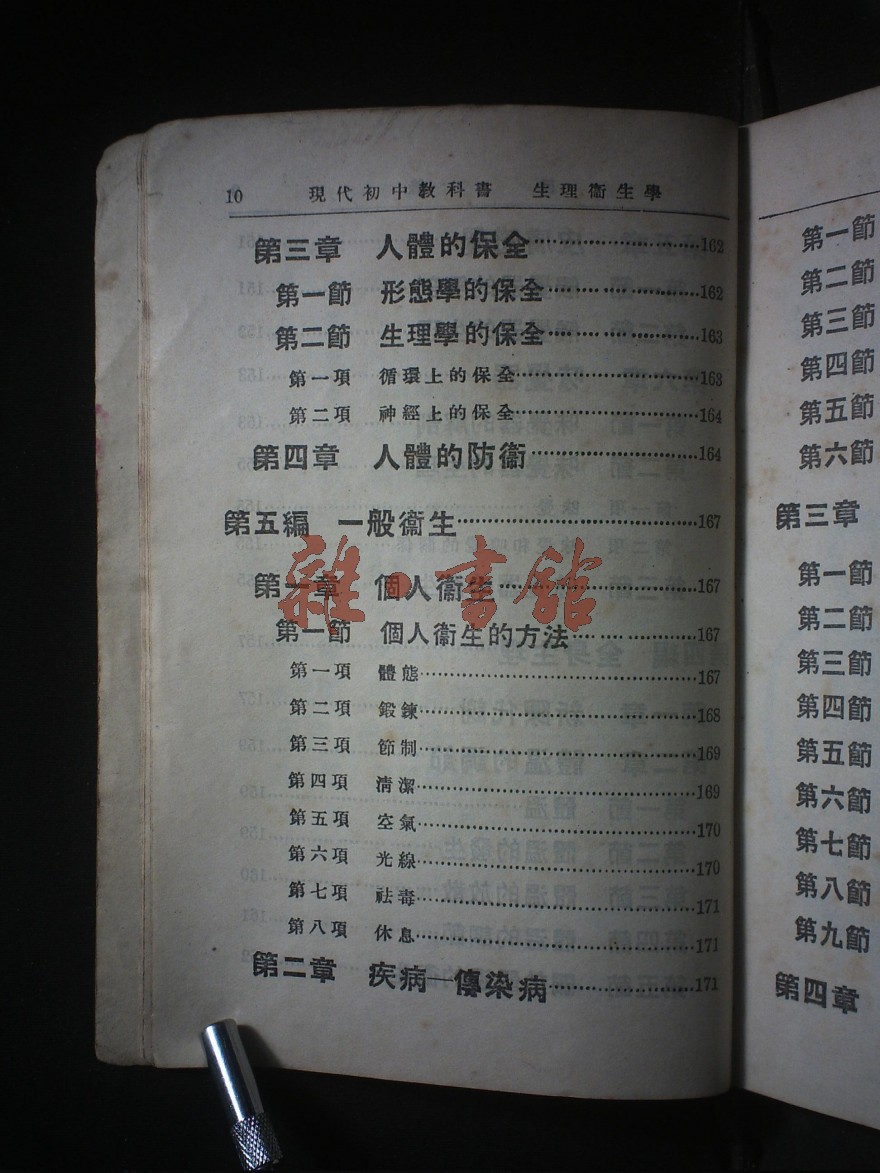 10 現代初中教科書 生理衞生學
第三章 人體的保全……………………162
第一節 形態學的保全……………………162
第二節 生理學的保全……………………163
第一項 循環上的保全……………………163
第二項 神經上的保全……………………164
第四章 人體的防衞……………………164
第五編 一般衞生……………………167
第一章 個人衞生……………………167
第一節 個人衞生的方法……………………167
第一項 體態……………………167
第二項 鍛鍊……………………168
第三項 節制……………………169
第四項 清潔……………………169
第五項 空氣……………………170
第六項 光線……………………170
第七項 祛毒……………………171
第八項 休息……………………171
第二章 疾病—傳染病……………………171
雜·書館
第一節
第二節
第三節
第四節
第五節
第六節
第三章
第一節
第二節
第三節
第四節
第五節
第六節
第七節
第八節
第九節
第四章